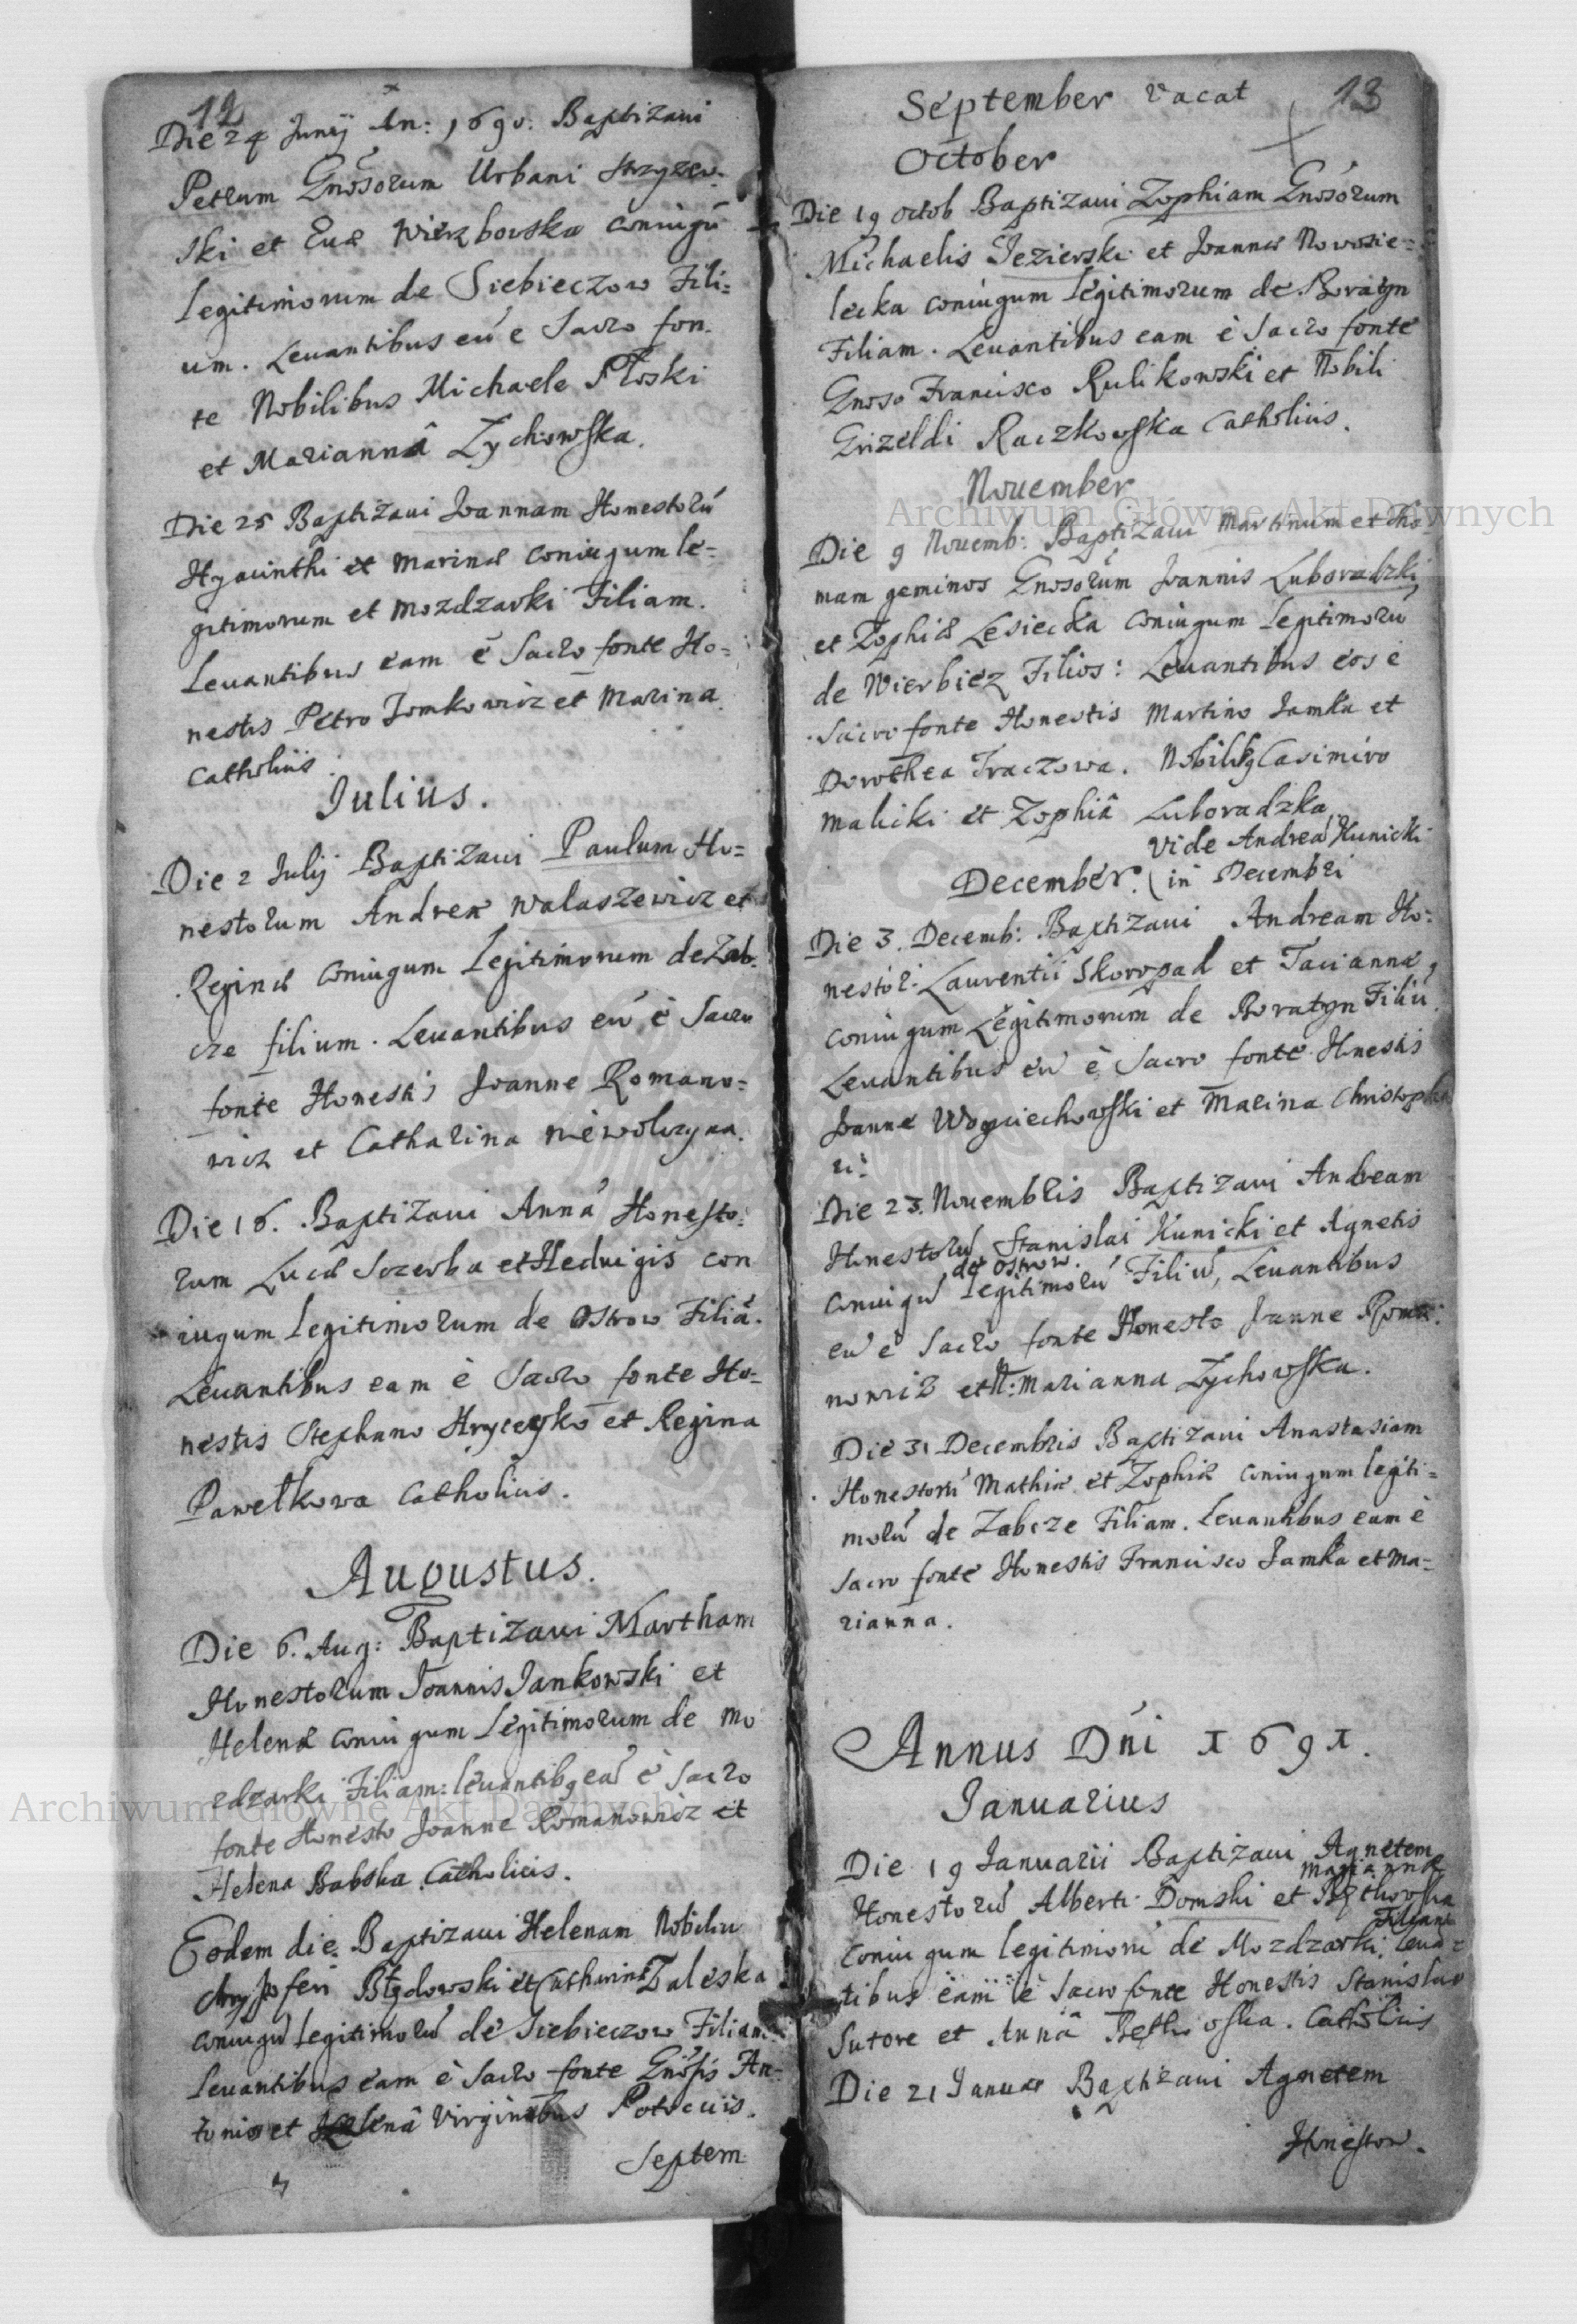 12
Die 24 Junij An: 1690. Baptizavi
Petrum Gnosorum Urbani Strzyzew-
ski et Evæ Wierzbowska coniugū
legitimorum de Siebieczow Fili=
um. Levantibus eū e Sacro fon-
te Nobilibus Michaele Płoski
et Mariannâ Zychowska.
Die 25 Baptizavi Joannam Honestorū
Hyacinthi et Marinæ coniugum le-
gitimorum et Mozdzarki Filiam.
Levantibus eam è Sacro fonte Ho=
nestis Petro Jomkowicz et Marina
Catholicis.
Julius.
Die 2 Julij Baptizavi Paulum Ho=
nestorum Andreæ Walaszewicz et
Reginæ coniugum Legitimorum de Zab-
cze filium. Levantibus eū è Sacro
fonte Honestis Joanne Romano=
wicz et Catharina Niewolczyna.
Die 16. Baptizavi Annā Honesto-
rum Lucæ Szczerba et Hedvigis con
iugum Legitimorum de Ostrow Filiā.
Levantibus eam è Sacro fonte Ho=
nestis Stephano Hryceyko et Regina
Pawełkowa Catholicis.
Augustus.
Die 6. Aug: Baptizavi Martham
Honestorum Joannis Jankowski et
Helenæ coniugum Legitimorum de Mo
zdzarki Filiam: levantibq eā è Sacro
fonte Honesto Joanne Romanowicz et
Helena Babska Catholicis.
Eodem die Baptizavi Helenam Nobiliū
Błędowski et Catharinæ Zaleska
coniugū legitimorū de Siebieczow Filiam
Levantibus eam è Sacro fonte Gnosis An-
tonio et Helenâ Virginibus Potocciis.
Septem
September vacat 13
October
Die 19 Octob Baptizavi Zophiam Gnosorum
Michaelis Jezierski et Joannæ Nowosie=
lecka coniugum legitimorum de Boratyn
Filiam. Levantibus eam è Sacro fonte
Gnoso Francisco Rulikowski et Nobili
Grizeldi Raczkowska Catholicis.
November
Die 9 Novemb: Baptizavi Martinum et Tho-
mam geminos Gnosorum Joannis Luboradzki
et Zophiæ Lesiecka coniugum Legitimorū
de Wierbiez Filios: Levantibus eos è
Sacro fonte Honestis Martino Jamka et
Dorothea Traczowa. Nobilibq Casimiro
Malicki et Zophiâ Luboradzka
Vide Andreā Kunicki
December. (in Decembri
Die 3. Decemb: Baptizavi Andream Ho-
nestor: Laurentii Skoropad et Taciannæ
coniugum Legitimorum de Boratyn Filiū.
Levantibus eū è Sacro fonte Honestis
Joanne Woyciechowski et Marina Christopho
ri:
Die 23. Novembris Baptizavi Andream
Honestorū Stanislai Kunicki et Agnetis
de Ostrow.
coniugū Legitimorū Filiū, Levantibus
eū è Sacro fonte Honesto Joanne Roma-
nowicz et N: Marianna Zychowska.
Die 31 Decembris Baptizavi Anastasiam
Honestorū Mathiæ et Zophiæ coniugum legiti=
morū de Zabcze Filiam. Levantibus eam è
Sacro fonte Honestis Francisco Jamka et Ma=
rianna.
Annus Dni 1691.
Januarius
Die 19 Januarii Baptizavi Agnetem
Mariannæ
Honestorū Alberti Domski et Bętkowska
Filiam
coniugum legitimorū de Mozdzarki. Leva=
tibus eam è Sacro fonte Honestis Stanislao
Sutore et Annâ Bętkowska. Catholicis
Die 21 Januar Baptizavi Agnetem
Honestor.
Archiwum Główne Akt Dawnych
Archiwum Główne Akt Dawnych